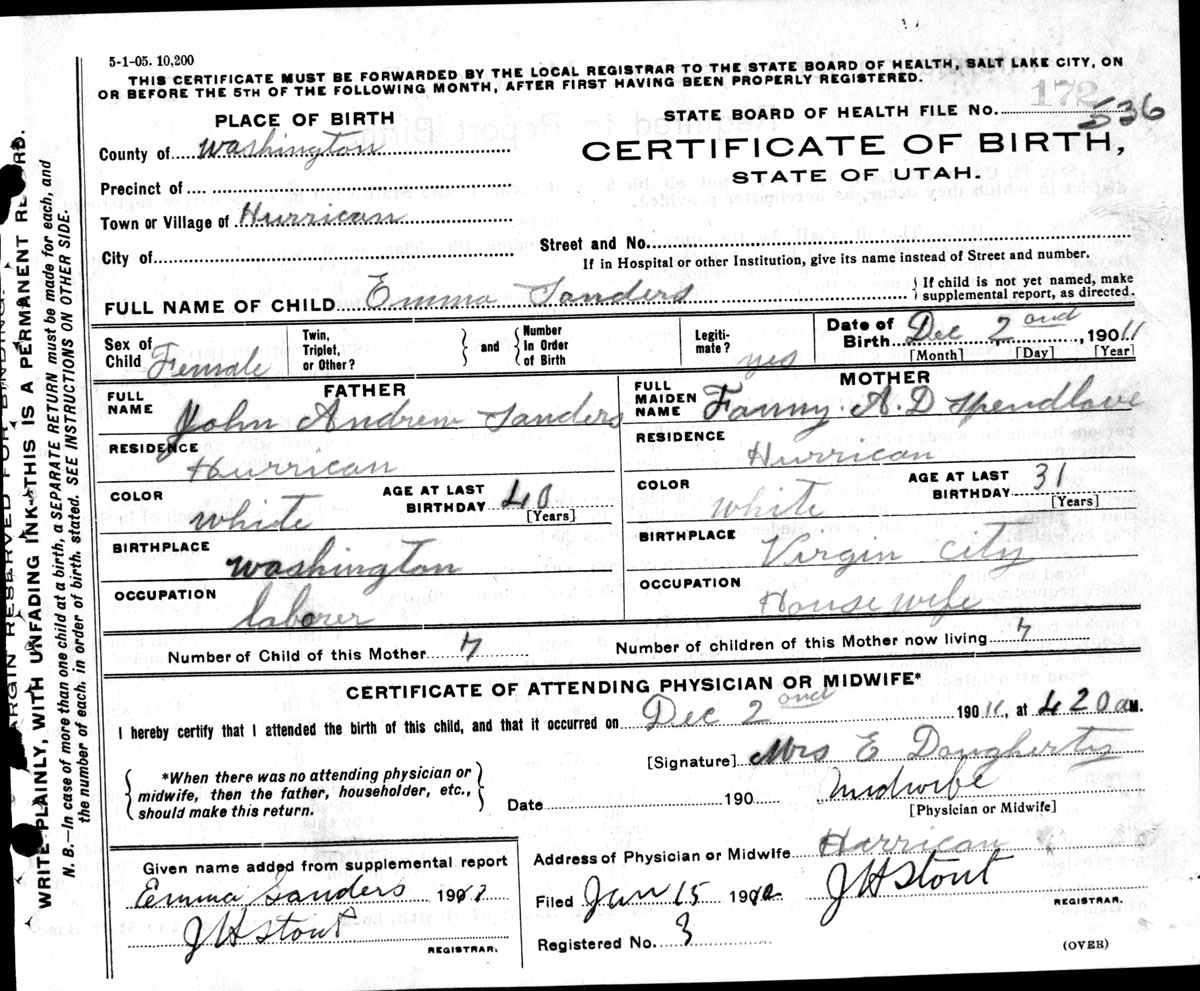 5-1-05. 10,200
THIS CERTIFICATE MUST BE FORWARDED BY THE LOCAL REGISTRAR TO THE STATE BOARD OF HEALTH, SALT LAKE CITY, ON
OR BEFORE THE 5TH OF THE FOLLOWING MONTH, AFTER FIRST HAVING BEEN PROPERLY REGISTERED.
172
PLACE OF BIRTH
STATE BOARD OF HEALTH FILE No. 536
County of Washington
CERTIFICATE OF BIRTH,
STATE OF UTAH.
Precinct of
Town or Village of Hurrican
City of
Street and No.
If in Hospital or other Institution, give its name instead of Street and number.
FULL NAME OF CHILD Emma Sanders
{ If child is not yet named, make
supplemental report, as directed.
Sex of Child Female
Twin, Triplet, or Other?
} and {
Number In Order of Birth
Legiti-mate? yes
Date of Birth Dec 2 ond, 190 11
[Month] [Day] [Year]
FATHER
MOTHER
FULL NAME John Andrew Sanders
FULL MAIDEN NAME Fanny. A. D Spendlove
RESIDENCE Hurrican
RESIDENCE Hurrican
COLOR White
AGE AT LAST BIRTHDAY 40 [Years]
COLOR White
AGE AT LAST BIRTHDAY 31 (Years)
BIRTHPLACE Washington
BIRTHPLACE Virgin City
OCCUPATION laborer
OCCUPATION House wife
Number of Child of this Mother 7
Number of children of this Mother now living 7
CERTIFICATE OF ATTENDING PHYSICIAN OR MIDWIFE*
I hereby certify that I attended the birth of this child, and that it occurred on Dec 2 ond 190 11, at 4 20 a M.
[Signature] Mrs E Dougherty
{ *When there was no attending physician or
midwife, then the father, householder, etc.,
should make this return. }
Date 190
Midwife
[Physician or Midwife]
Given name added from supplemental report
Emma Sanders 190
J H Stout
REGISTRAR.
Address of Physician or Midwife Hurrican
Filed Jan 15 190
J H Stout
REGISTRAR.
Registered No. 3
(OVER)
ARGIN RESERVED FOR BINDING.
WRITE PLAINLY, WITH UNFADING INK—THIS IS A PERMANENT RECORD.
N. B.—In case of more than one child at a birth, a SEPARATE RETURN must be made for each, and
the number of each, in order of birth, stated. SEE INSTRUCTIONS ON OTHER SIDE.